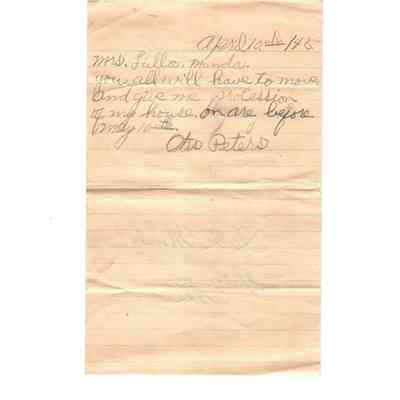 April 10nd 145
Mrs. Fuller. Manda.
you all will have to move
And give me protession
of my house on are before
May 10th.
Otis Peters